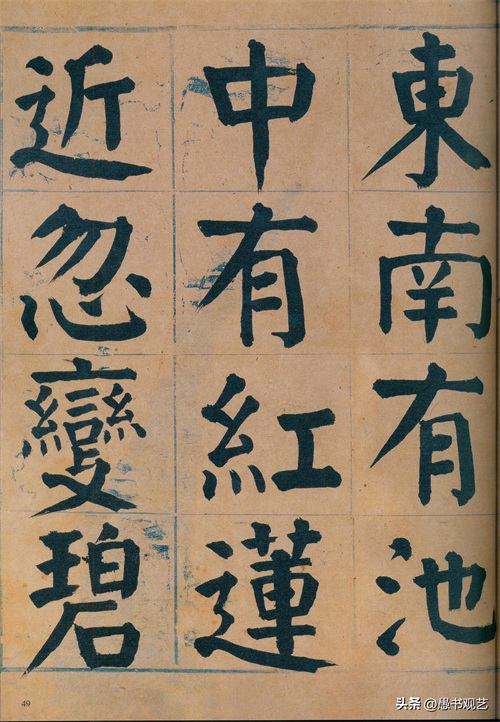 東南有池
中有紅蓮
近忽變碧
49
头条 @愚书观艺